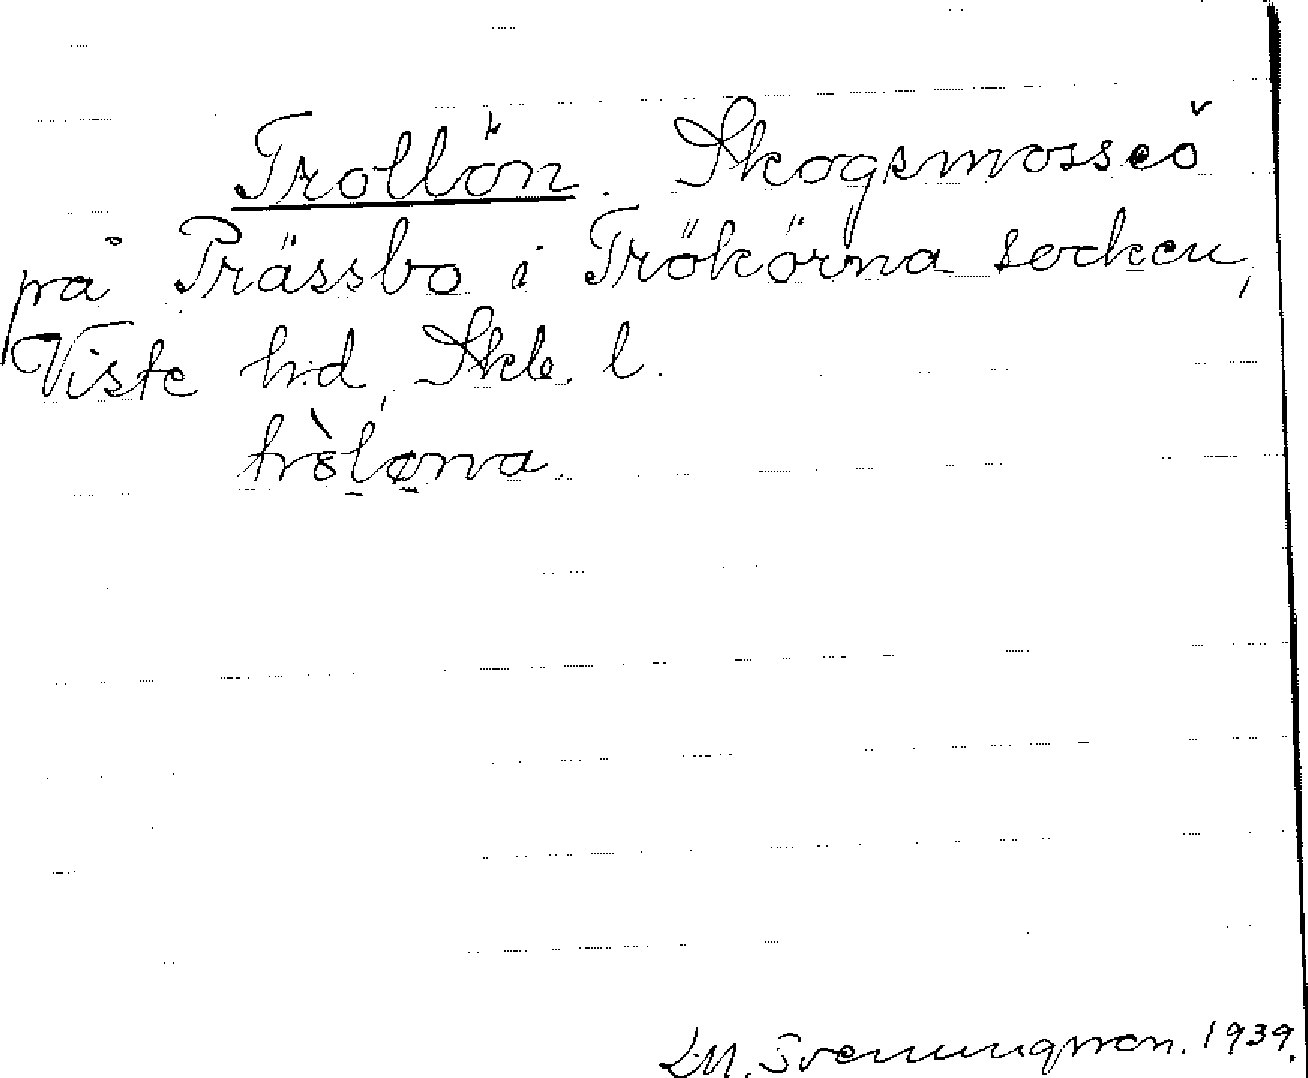 Trollön. Skogsmosseö
på Prässbo i Trökörna socken,
Viste hd, Skb. l.
L.M. Svenungsson. 1939.